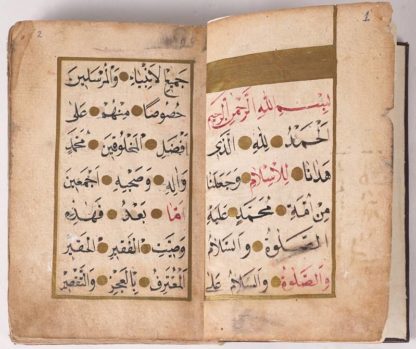 1
بِسْمِ اللّٰهِ الرَّحْمٰنِ الرَّحِيمِ
اَلْحَمْدُ لِلّٰهِ الَّذِى
هَدٰانَا لِلْاِسْلَامِ وَجَعَلَنَا
مِنْ اُمَّةِ مُحَمَّدٍ عَلَيْهِ
الصَّلٰوةُ وَالسَّلَامُ
وَالصَّلٰوةُ وَالسَّلَامُ عَلٰى
2
جَمِيعِ الْاَنْبِيَاءِ وَالْمُرْسَلِينَ
خُصُوصًا مِنْهُمْ عَلٰى
اَفْضَلِ الْمَخْلُوقِينَ مُحَمَّدٍ
وَاٰلِهِ وَصَحْبِهِ اَجْمَعِينَ
اَمَّا بَعْدُ فَهٰذِهِ
وَصِيَّتُ الْفَقِيرِ الْحَقِيرِ
الْمُعْتَرِفِ بِالْعَجْزِ وَالتَّقْصِيرِ